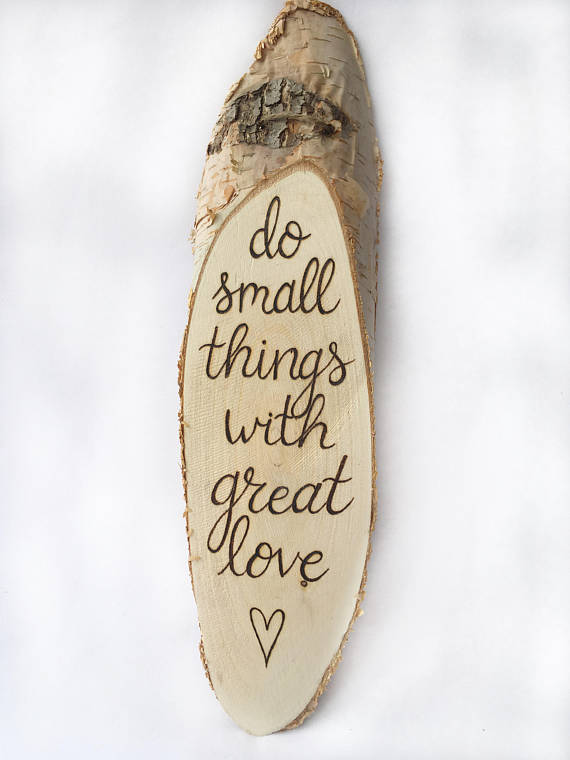 do
small
things
with
great
love